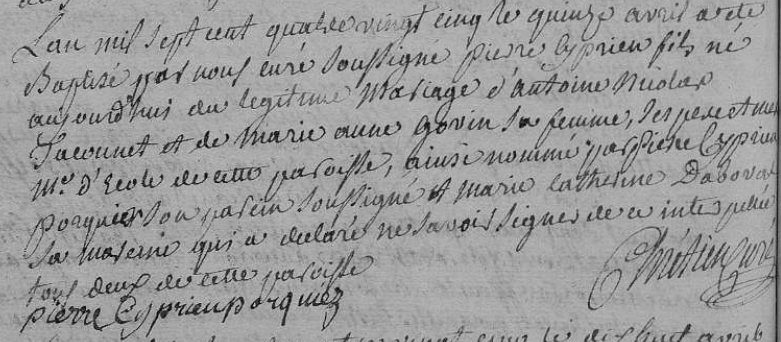 L'an mil sept cent quatre vingt cinq le quinze avril a été
Baptisé par nous curé soussigné pierre Cyprien fils né
aujourd'hui du legitime Mariage d'antoine Nicolas
et de Marie anne govin sa femme, ses pere et mere
Mtre D'Ecole de cette paroisse, ainsi nommé par Pierre Cyprien
porquiez son parein soussigné et Marie Catherine Daboval
sa mareine qui a declaré ne savoir signer de ce interpellée
tous deux de cette paroisse
Chrétien curé
pierre Cyprien porquiez